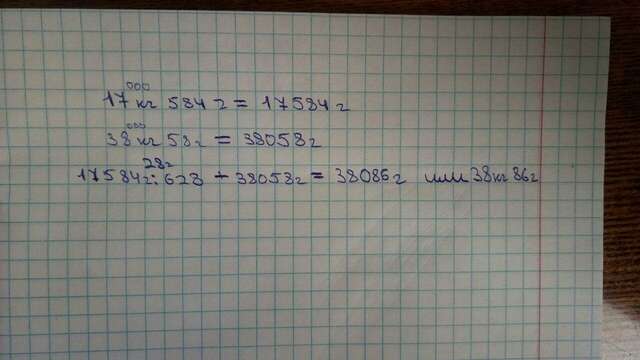 000
17 кг 584 г = 17584 г
000
38 кг 58 г = 38058 г
28 г
17584 г : 628 + 38058 г = 38086 г или 38 кг 86 г